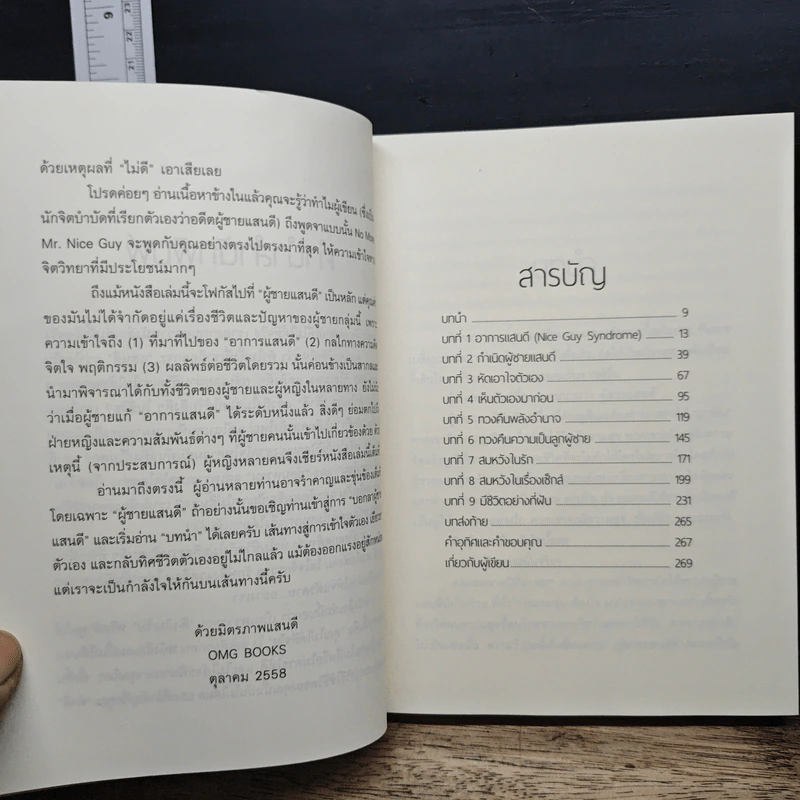 9
ด้วยเหตุผลที่ “ไม่ดี” เอาเสียเลย
โปรดค่อยๆ อ่านเนื้อหาข้างในแล้วคุณจะรู้ว่าทำไมผู้เขียน
นักจิตบำบัดที่เรียกตัวเองว่าอดีตผู้ชายแสนดี) ถึงพูดจาแบบนั้น No More
Mr. Nice Guy จะพูดกับคุณอย่างตรงไปตรงมาที่สุด ให้ความเข้าใจทาง
จิตวิทยาที่มีประโยชน์มากๆ
ถึงแม้หนังสือเล่มนี้จะโฟกัสไปที่ “ผู้ชายแสนดี” เป็นหลัก
ของมันไม่ได้จำกัดอยู่แค่เรื่องชีวิตและปัญหาของผู้ชายกลุ่มนี้ เพราะ
ความเข้าใจถึง (1) ที่มาที่ไปของ “อาการแสนดี” (2) กลไกทางความคิด
จิตใจ พฤติกรรม (3) ผลลัพธ์ต่อชีวิตโดยรวม นั้นค่อนข้างเป็นสากลและ
นำมาพิจารณาได้กับทั้งชีวิตของผู้ชายและผู้หญิงในหลายทาง
ว่าเมื่อผู้ชายแก้ “อาการแสนดี” ได้ระดับหนึ่งแล้ว สิ่งดีๆ ย่อมตกไปถึง
ฝ่ายหญิงและความสัมพันธ์ต่างๆ ที่ผู้ชายคนนั้นเข้าไปเกี่ยวข้องด้วย ด้วย
เหตุนี้ (จากประสบการณ์) ผู้หญิงหลายคนจึงเชียร์หนังสือเล่มนี้เต็มที่
อ่านมาถึงตรงนี้ ผู้อ่านหลายท่านอาจรำคาญและขุ่นข้องเต็มที
โดยเฉพาะ “ผู้ชายแสนดี” ถ้าอย่างนั้นขอเชิญท่านเข้าสู่การ “บอกลาผู้ชาย
แสนดี” และเริ่มอ่าน “บทนำ” ได้เลยครับ เส้นทางสู่การเข้าใจตัวเอง เยียวยา
ตัวเอง และกลับทิศชีวิตตัวเองอยู่ไม่ไกลแล้ว แม้ต้องออกแรงอยู่สักหน่อย
แต่เราจะเป็นกำลังใจให้กันบนเส้นทางนี้ครับ
ด้วยมิตรภาพแสนดี
OMG BOOKS
ตุลาคม 2558
สารบัญ
บทนำ 9
บทที่ 1 อาการแสนดี (Nice Guy Syndrome) 13
บทที่ 2 กำเนิดผู้ชายแสนดี 39
บทที่ 3 หัดเอาใจตัวเอง 67
บทที่ 4 เห็นตัวเองมาก่อน 95
บทที่ 5 ทวงคืนพลังอำนาจ 119
บทที่ 6 ทวงคืนความเป็นลูกผู้ชาย 145
บทที่ 7 สมหวังในรัก 171
บทที่ 8 สมหวังในเรื่องเซ็กส์ 199
บทที่ 9 มีชีวิตอย่างที่ฝัน 231
บทส่งท้าย 265
คำอุทิศและคำขอบคุณ 267
เกี่ยวกับผู้เขียน 269